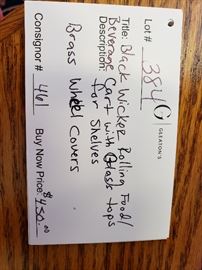 Lot # 384 G
GLEATON'S
Title: Black Wicker Rolling Food/
Description: Beverage Cart with Glass tops
for Shelves
Brass Wheel Covers
Consignor # 461 Buy Now Price: $450.00